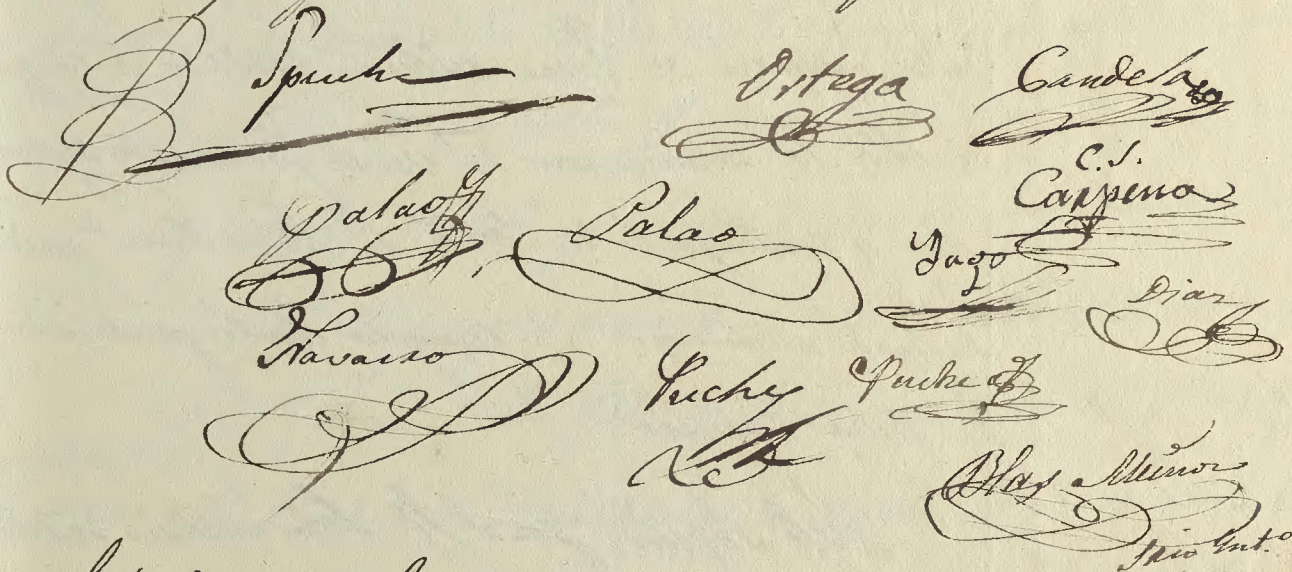 Spuche Ortega Candela
C. S.
Carpena
Palao Palao Yago
Diaz
Navarro
Puche Puche
Blas Muñoz
Srio Int.º